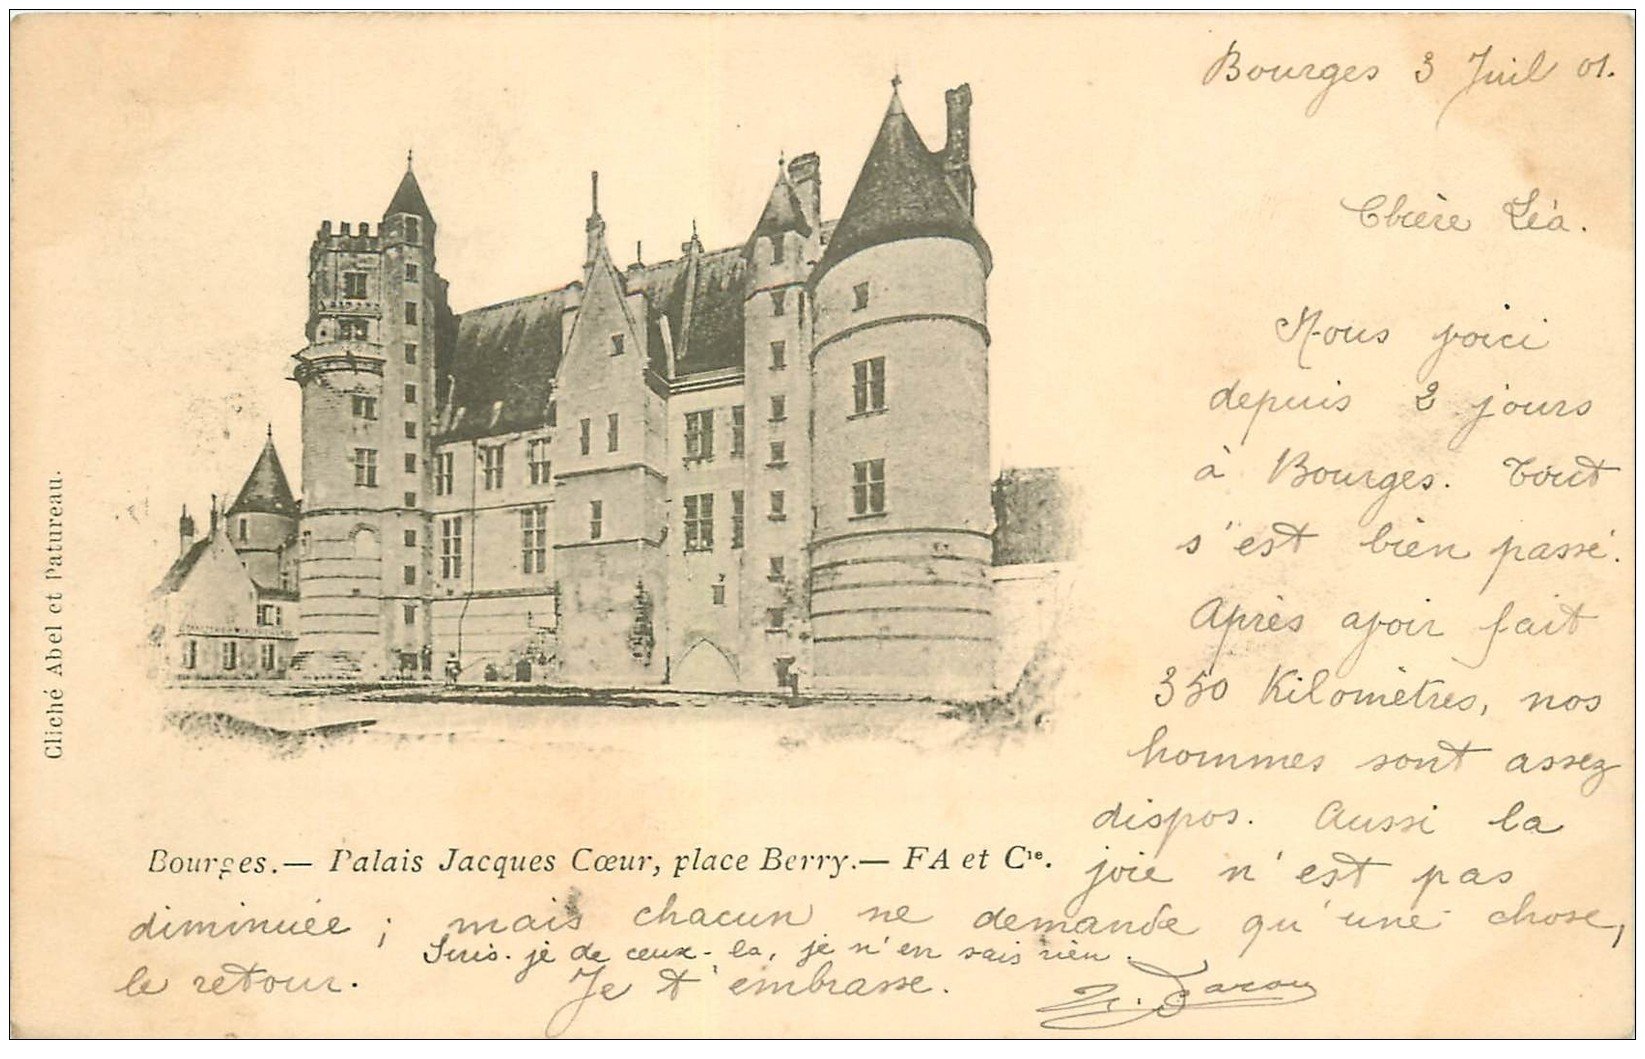 Bourges 3 Juil 01.
Chère Léa.
Nous voici
depuis 2 jours
à Bourges. Tout
s'est bien passé.
Après avoir fait
350 Kilomètres, nos
hommes sont assez
dispos. Aussi la
joie n'est pas
diminuée ; mais chacun ne demande qu'une chose,
le retour.
Suis-je de ceux-la, je n'en sais rien.
Je t'embrasse.
Bourges.— Palais Jacques Cœur, place Berry.— FA et Cie.
Cliché Abel et Patureau.